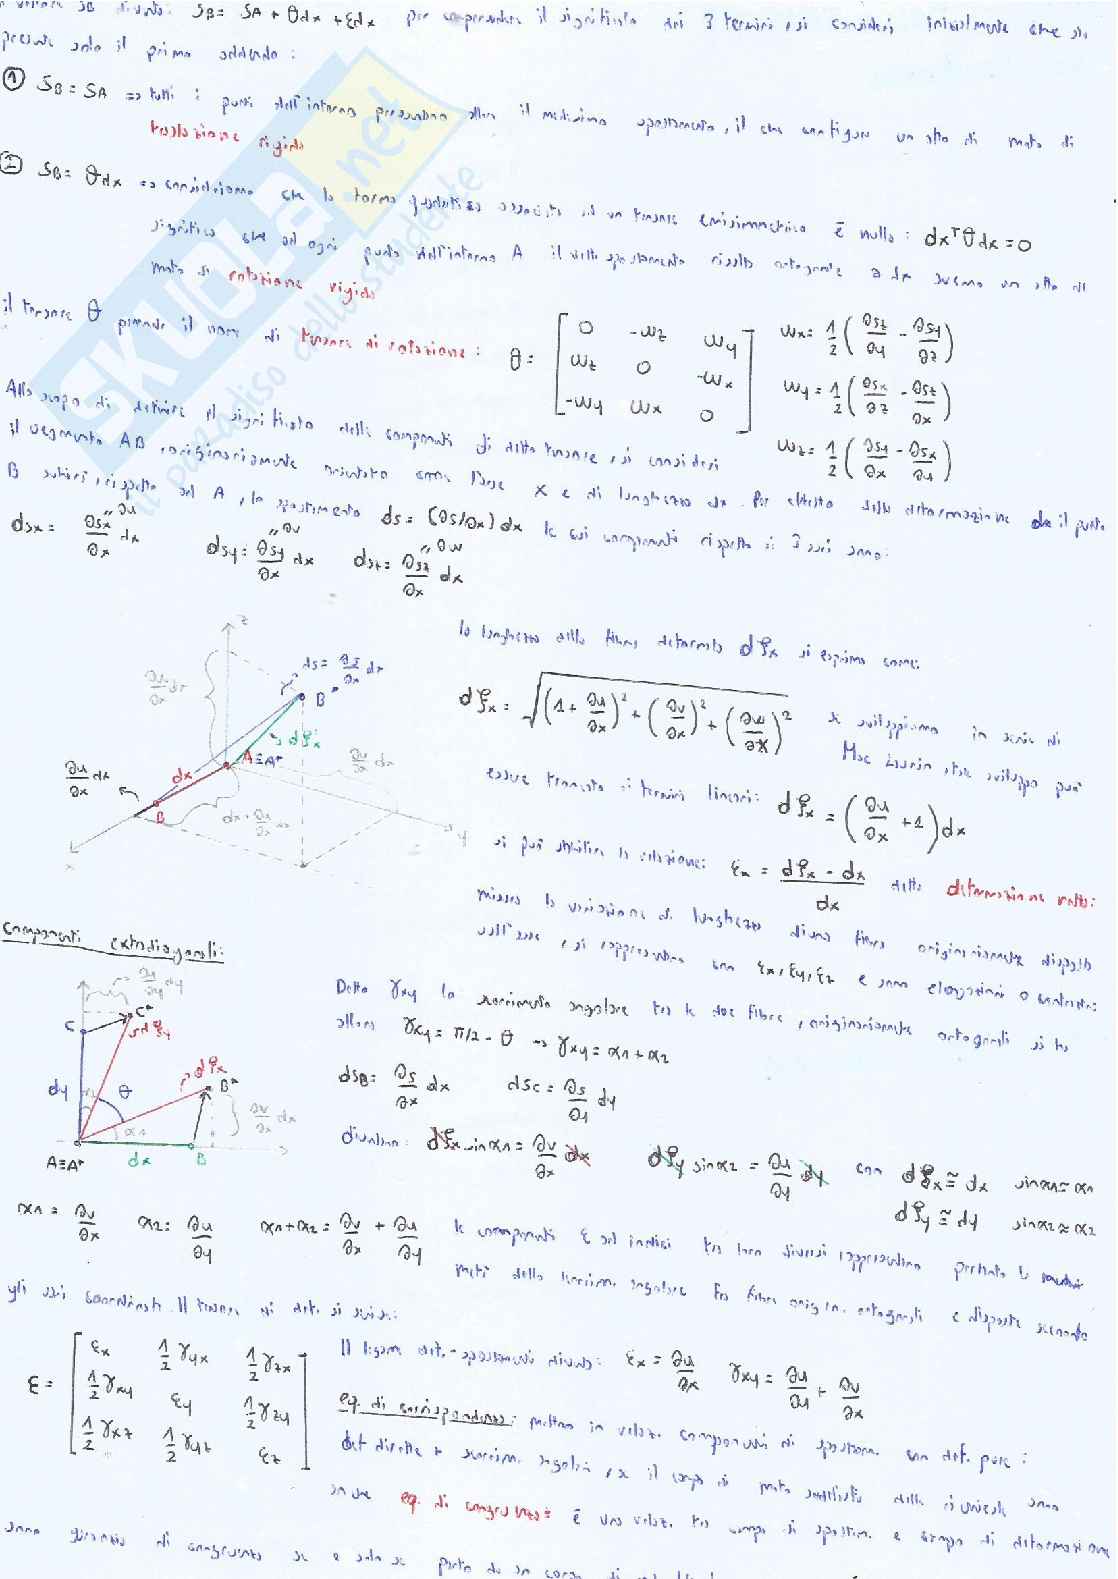 SB = SA + θdx + εdx per comprendere il significato dei 3 termini, si consideri inizialmente che sia
presente solo il primo addendo :
① SB = SA => tutti i punti dell'intorno presentano allora il medesimo spostamento, il che configura un atto di moto di
traslazione rigida
② SB = θdx => consideriamo che la forma quadratica associata ad un tensore emisimmetrico è nulla : dxᵀθdx = 0
significa che ad ogni punto dell'intorno A il vett. spostamento risulta ortogonale a dx avremo un atto di
moto di rotazione rigida
il tensore θ prende il nome di tensore di rotazione :
θ = [ 0 -ωz ωy
ωz 0 -ωx
-ωy ωx 0 ]
ωx = 1/2 ( ∂sz/∂y - ∂sy/∂z )
ωy = 1/2 ( ∂sx/∂z - ∂sz/∂x )
ωz = 1/2 ( ∂sy/∂x - ∂sx/∂y )
Allo scopo di definire il significato delle componenti di detto tensore, si consideri
il segmento AB, originariamente orientato come l'asse x e di lunghezza dx. Per effetto della deformazione il punto
B subirà, rispetto ad A, lo spostamento ds = (∂s/∂x) dx le cui componenti rispetto ai 3 assi sono:
dsx = ∂sx/∂x dx " ∂u
dsy = ∂sy/∂x dx " ∂v
dsz = ∂sz/∂x dx " ∂w
z
ds = ∂s/∂x dx
B*
∂w/∂x dx
dξx
A≡A*
dx
∂u/∂x dx
B
∂v/∂x dx
dx + ∂u/∂x dx
x
y
la lunghezza della fibra deformata dξx si esprime come:
dξx = √( (1 + ∂u/∂x)² + (∂v/∂x)² + (∂w/∂x)² ) se sviluppiamo in serie di
Mac Laurin, tale sviluppo può
essere troncato ai termini lineari: dξx = ( ∂u/∂x + 1 ) dx
si può stabilire la relazione: εx = (dξx - dx)/dx detta deformazione
misura la variazione di lunghezza di una fibra originariamente disposta
sull'asse, si rappresentano con εx, εy, εz e sono elongazioni o contrazioni
Componenti extradiagonali:
∂u/∂y dy
C
C*
dξy
dy
α2
θ
dξx
B*
α1
∂v/∂x dx
A≡A*
dx
B
Detto γxy lo scorrimento angolare tra le due fibre, originariamente ortogonali si ha
allora γxy = π/2 - θ => γxy = α1 + α2
dsB = ∂s/∂x dx dsC = ∂s/∂y dy
diventano: dξx sinα1 = ∂v/∂x dx dξy sinα2 = ∂u/∂y dy con dξx ≅ dx sinα1 ≅ α1
dξy ≅ dy sinα2 ≅ α2
α1 = ∂v/∂x α2 = ∂u/∂y α1 + α2 = ∂v/∂x + ∂u/∂y le componenti ε ad indici tra loro diversi rappresentano pertanto le
metà dello scorrim. angolare tra fibre origin. ortogonali e disposte secondo
gli assi coordinati. Il tensore di def. si scrive:
ε = [ εx 1/2 γyx 1/2 γzx
1/2 γxy εy 1/2 γzy
1/2 γxz 1/2 γyz εz ]
Il legame def.-spostamenti diventa: εx = ∂u/∂x γxy = ∂u/∂y + ∂v/∂x
eq. di corrispondenza: mettono in relaz. componenti di spostam. con def. pure :
eq. di congruenza = è una relaz. tra campo di spostam. e campo di deformazione
SKUOLA.net
il paradiso dello studente